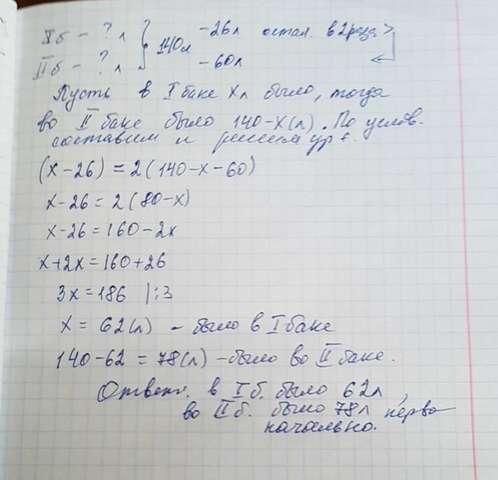 I б - ? л } 140л -26л остал. в 2 раза >
II б - ? л -60л
Пусть в I баке x л было, тогда
во II баке было 140-x(л). По услов.
составим и решим ур-е.
(x-26) = 2(140-x-60)
x-26 = 2(80-x)
x-26 = 160-2x
x+2x = 160+26
3x = 186 |:3
x = 62(л) - было в I баке
140-62 = 78(л) - было во II баке.
Ответ: в I б. было 62л,
во II б. было 78л перво
начально.